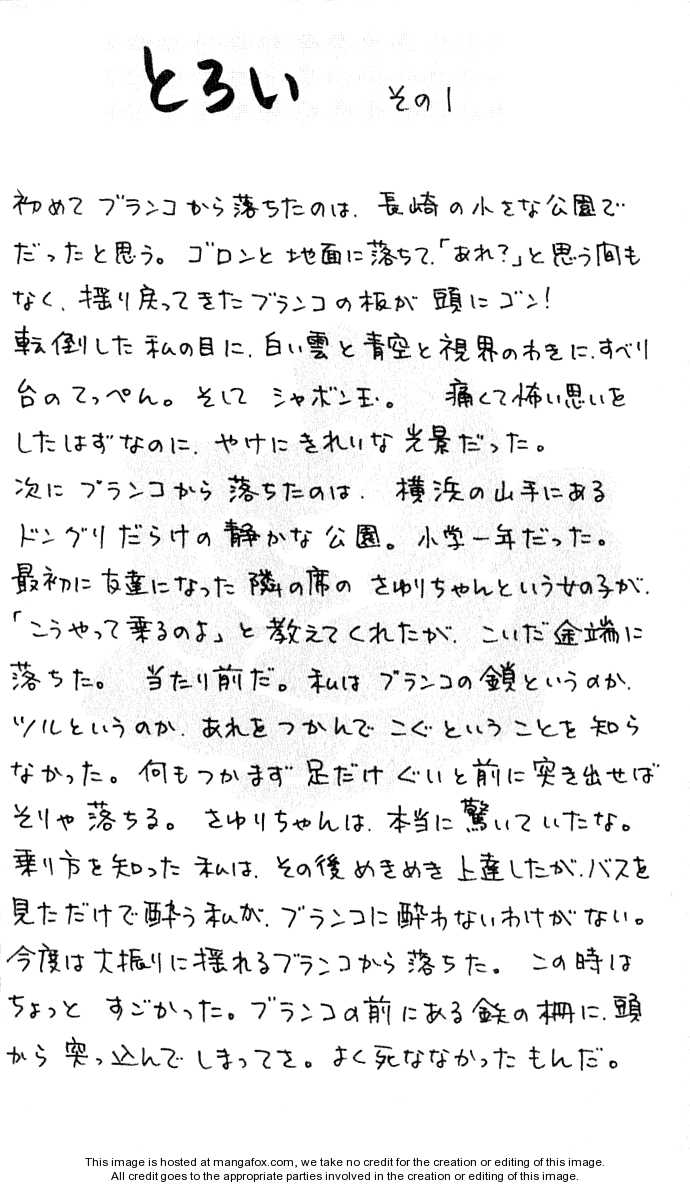 とろい その1
初めてブランコから落ちたのは、長崎の小さな公園で
だったと思う。ゴロンと地面に落ちて、「あれ?」と思う間も
なく、揺り戻ってきたブランコの板が頭にゴン!
転倒した私の目に、白い雲と青空と視界のわきに、すべり
台のてっぺん。そして シャボン玉。 痛くて怖い思いを
したはずなのに、やけにきれいな光景だった。
次にブランコから落ちたのは、横浜の山手にある
ドングリだらけの静かな公園。小学一年だった。
最初に友達になった隣の席のさゆりちゃんという女の子が、
「こうやって乗るのよ」と教えてくれたが、こいだ途端に
落ちた。 当たり前だ。私はブランコの鎖というのか、
ツルというのか、あれをつかんでこぐということを知ら
なかった。何もつかまず足だけぐいと前に突き出せば
そりゃ落ちる。さゆりちゃんは、本当に驚いていたな。
乗り方を知った私は、その後めきめき上達したが、バスを
見ただけで酔う私が、ブランコに酔わないわけがない。
今度は大振りに揺れるブランコから落ちた。この時は
ちょっと すごかった。ブランコの前にある鉄の柵に、頭
から突っ込んでしまってさ。よく死ななかったもんだ。
This image is hosted at mangafox.com, we take no credit for the creation or editing of this image.
All credit goes to the appropriate parties involved in the creation or editing of this image.